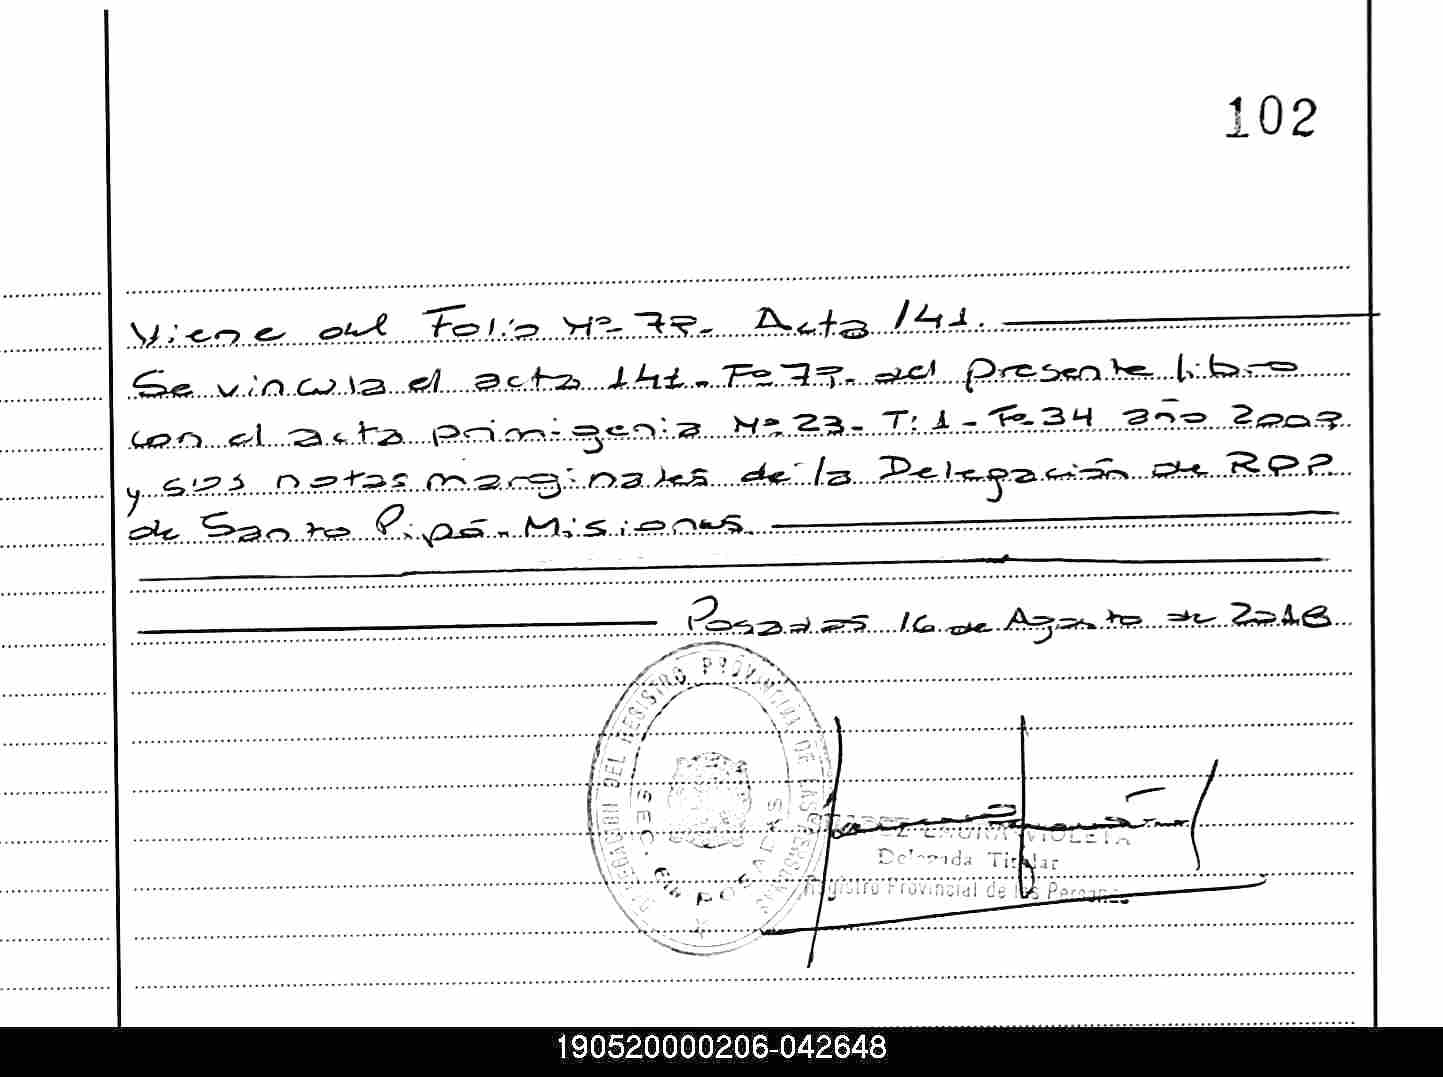 102
Viene del Folio Nº 77. Acta 141.
Se vincula el acta 141 - Fº 77. del presente libro
con el acta primigenia Nº 23 - T: 1 - Fº 34 año 2003
y sus notas marginales de la Delegación de RPP.
de Santo Pipó - Misiones.
Posadas 16 de Agosto de 2018
DELEGACION DEL REGISTRO PROVINCIAL DE LAS PERSONAS
SEC. 6ta POSADAS
LAURA VIOLETA
Delegada Titular
Registro Provincial de las Personas
190520000206-042648